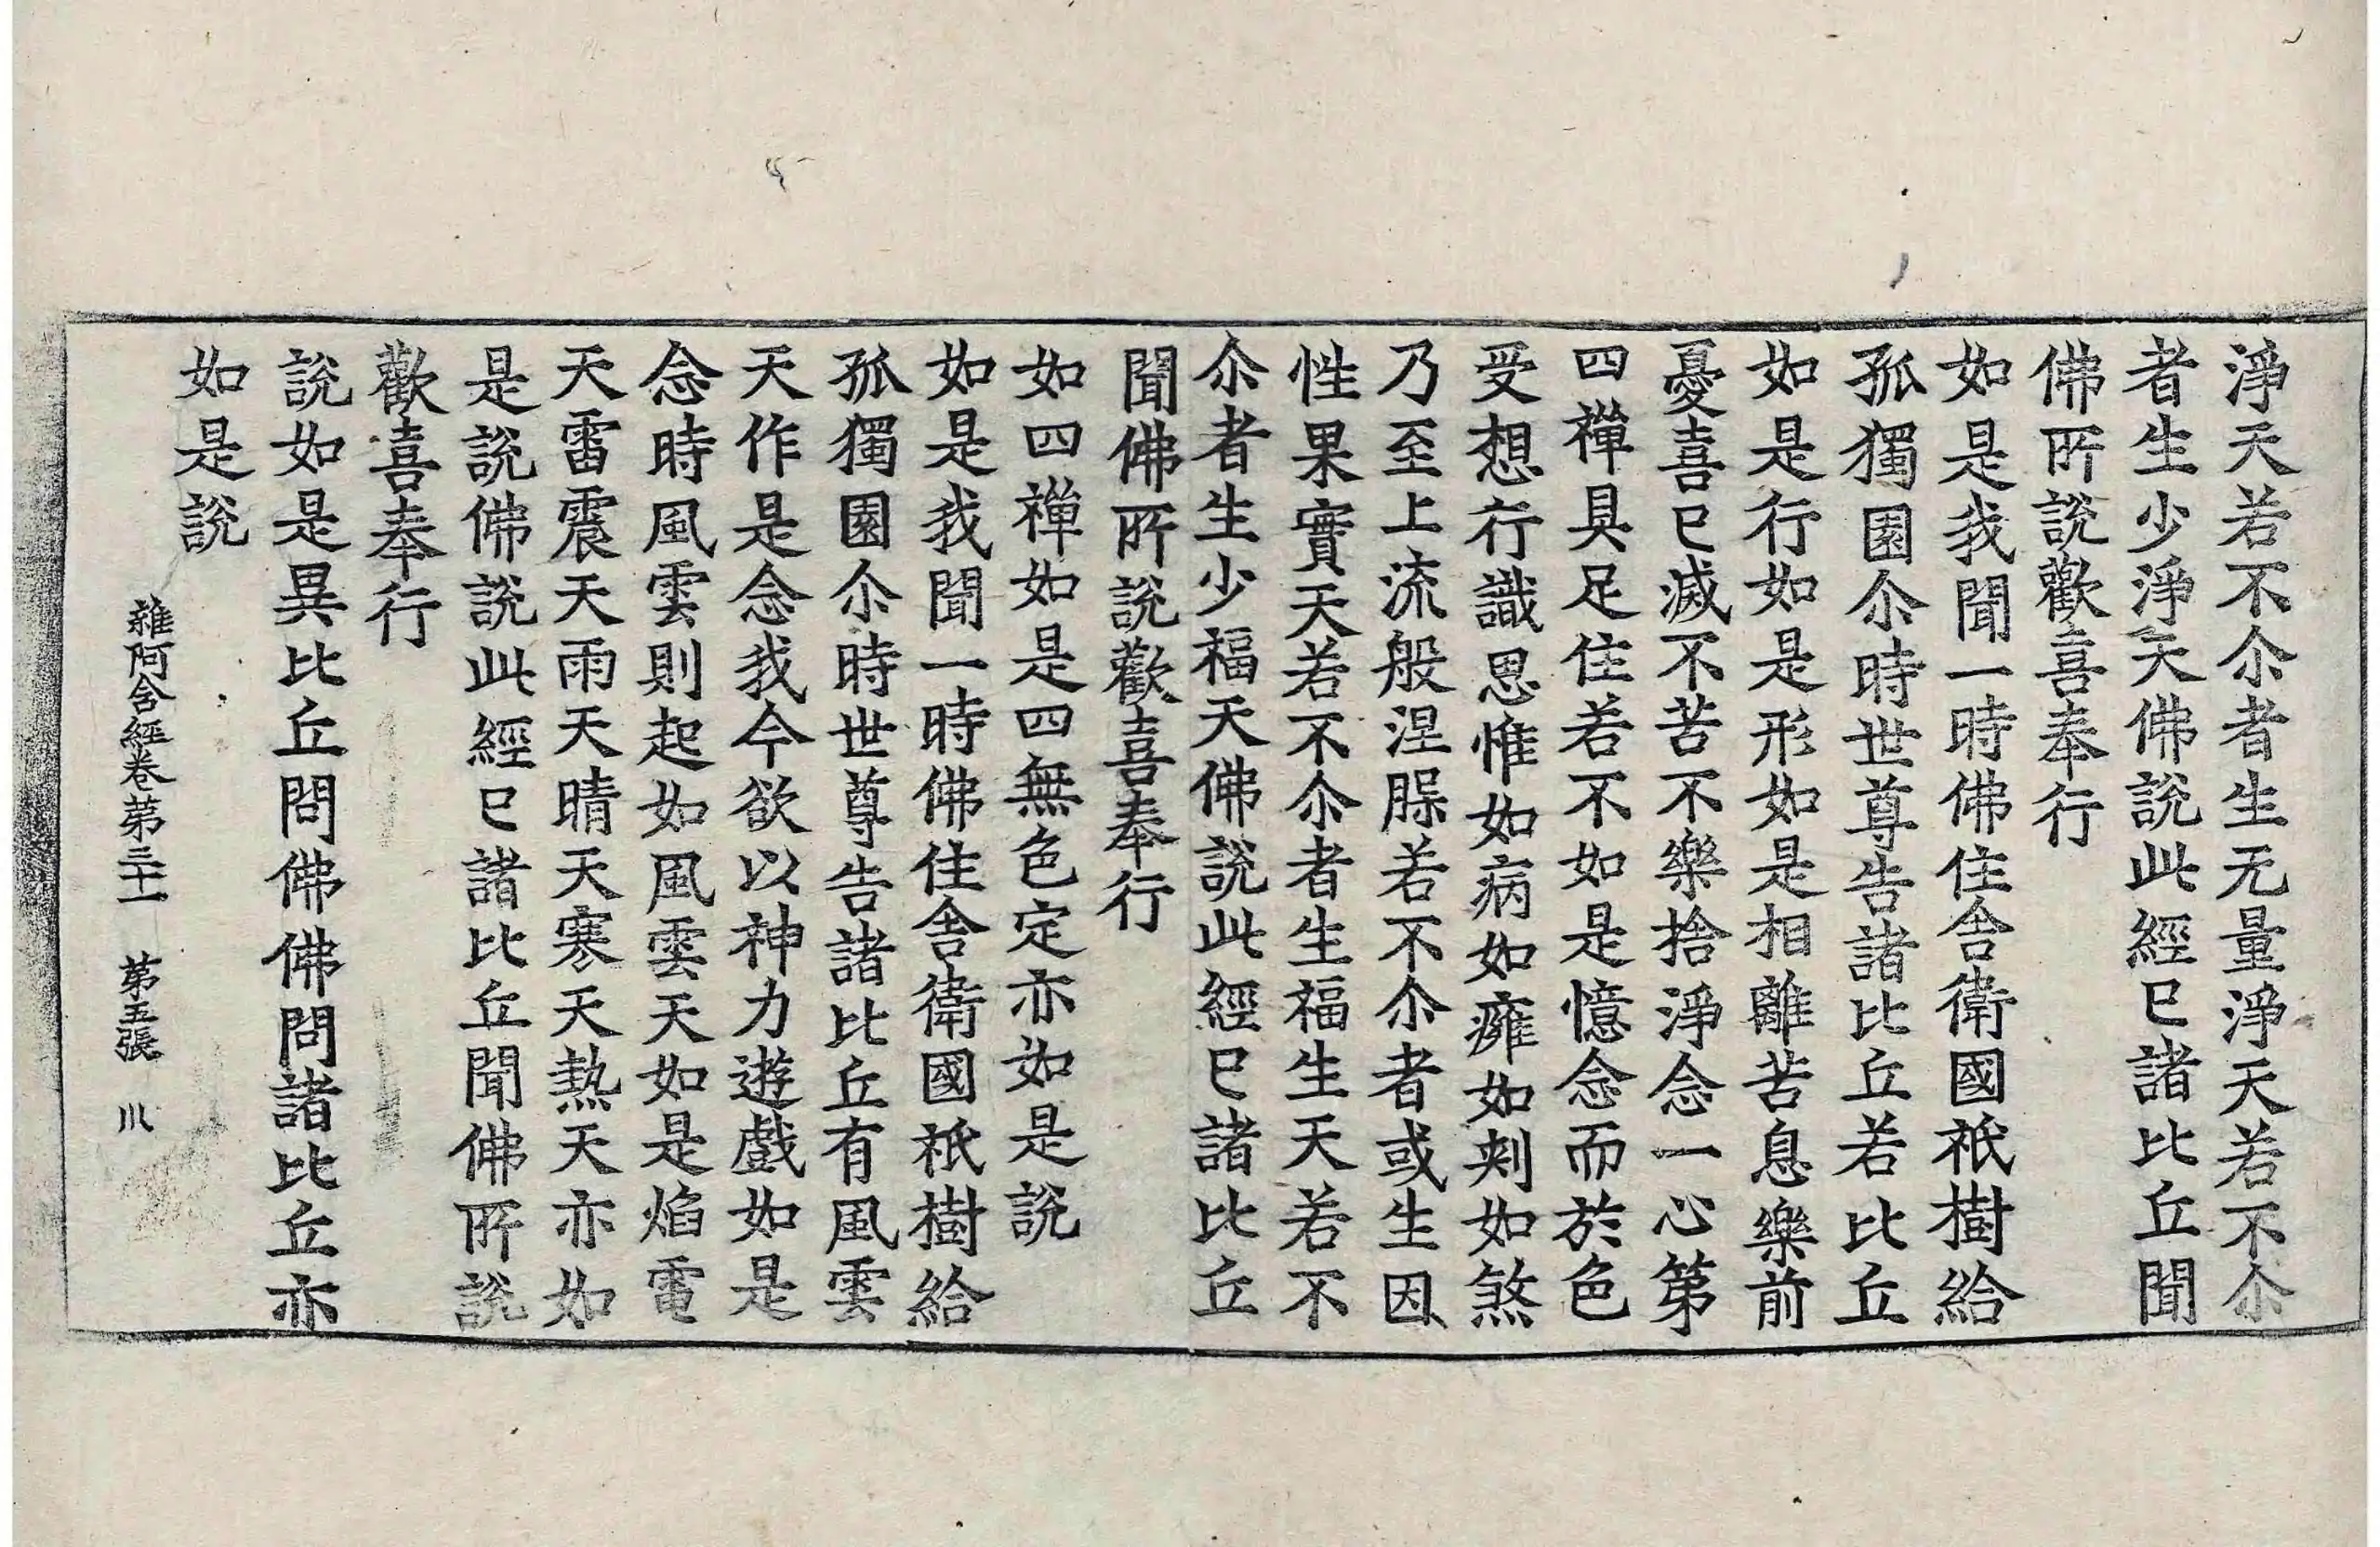 淨天若不尒者生无量淨天若不尒
者生少淨天佛說此經已諸比丘聞
佛所說歡喜奉行
如是我聞一時佛住舍衛國祇樹給
孤獨園尒時世尊告諸比丘若比丘
如是行如是形如是相離苦息樂前
憂喜已滅不苦不樂捨淨念一心第
四禪具足住若不如是憶念而於色
受想行識思惟如病如癰如刺如煞
乃至上流般涅脲若不尒者或生因
性果實天若不尒者生福生天若不
尒者生少福天佛說此經已諸比丘
聞佛所說歡喜奉行
如四禪如是四無色定亦如是說
如是我聞一時佛住舍衛國祇樹給
孤獨園尒時世尊告諸比丘有風雲
天作是念我今欲以神力遊戲如是
念時風雲則起如風雲天如是焰電
天雷震天雨天晴天寒天熱天亦如
是說佛說此經已諸比丘聞佛所說
歡喜奉行
說如是異比丘問佛佛問諸比丘亦
如是說
雜阿含經卷第三十一 第五張 川